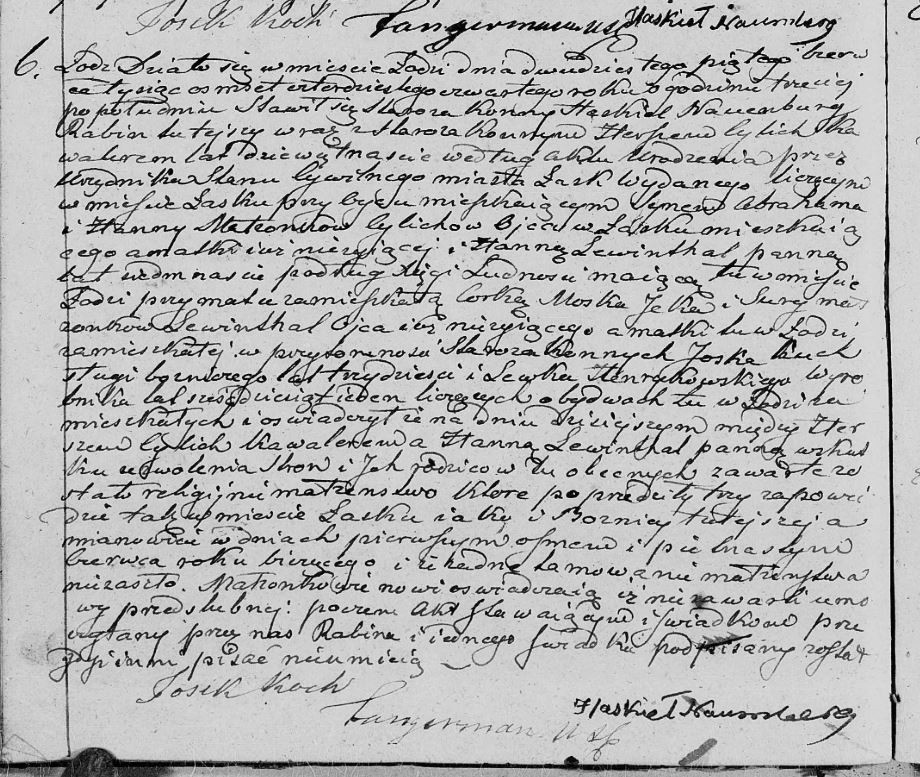 Josek Koch Haskiel Naumberg
Langerman USC
6. Lodz Działo się w mieście Łodzi dnia dwudziestego piątego Czerw
ca tysiąc osmset czterdziestego czwartego roku o godzinie trzeciej
po południu Stawił się Starozakonny Haskiel Nauenburg
Rabin tutejszy wraz z Starozakonnym Herszem Cylich Ka
walerem lat dziewiętnaście według Aktu Urodzenia przez
Urzędnika Stanu Cywilnego miasta Łask wydanego liczącym
w mieście Łasku przy Oycu mieszkaiącym Synem Abrahama
i Hanny Małżonków Cylichów Ojca w Łasku mieszkaią
cego a matki iuż nieżyiącej i Hanną Lewinthal panną
lat siedmnaście podług Xięgi Ludnosci maiącą tu w mieście
Łodzi przy matce zamieszkałą Corką Moska Jcka i Sury mał
żonków Lewinthal Ojca iuż nieżyiącego a matki tu w Łodzi
zamieszkałej w przytomnosci Starozakonnych Joska Kuch
sługi bozniczego lat trzydziesci i Lewka Henrykowskiego wyro
bnika lat sześćdziesiąt ieden liczących obydwóch tu w Łodzi za
mieszkałych i oświadczył że na dniu dzisiejszym między Her
szem Cylich Kawalerem a Hanną Lewinthal panną w skut
ku zezwolenia Stron i Jch rodziców tu obecnych zawarte zo
stało religijne małżeństwo które poprzedziły trzy zapowie
dzie tak w mieście Łasku iako i Boznicy tutejszej a
mianowicie w dniach pierwszym osmym i piętnastym
Czerwca roku bieżącego i że żadne tamowanie małżeństwa
niezaszło. Małżonkowie nowi oswiadczaią iż niezawarli umo
wy przedslubnej poczem Akt stawaiącym i Swiadkom prze
czytany przez nas Rabina i iednego Swiadka podpisany został
gdyż inni pisać nieumieią
Josek Koch Haskiel Naumberg
Langerman USC